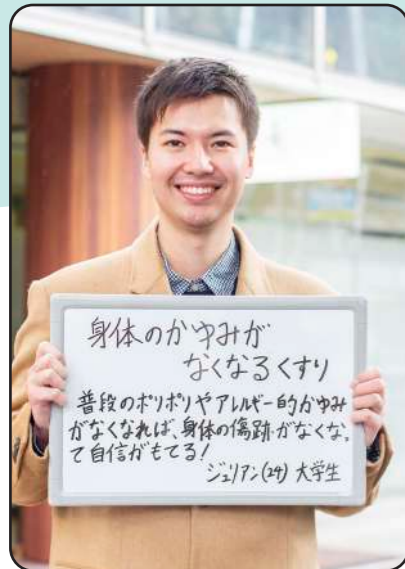 身体のかゆみが
なくなるくすり
普段のポリポリやアレルギー的かゆみ
がなくなれば、身体の傷跡がなくなっ
て自信がもてる！
ジュリアン(24) 大学生